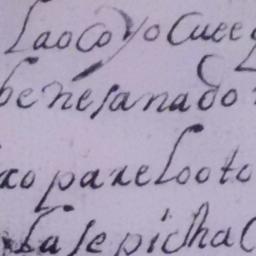 Laocoyo Cuee
benesanado
xo paxelooto
Lasepicha